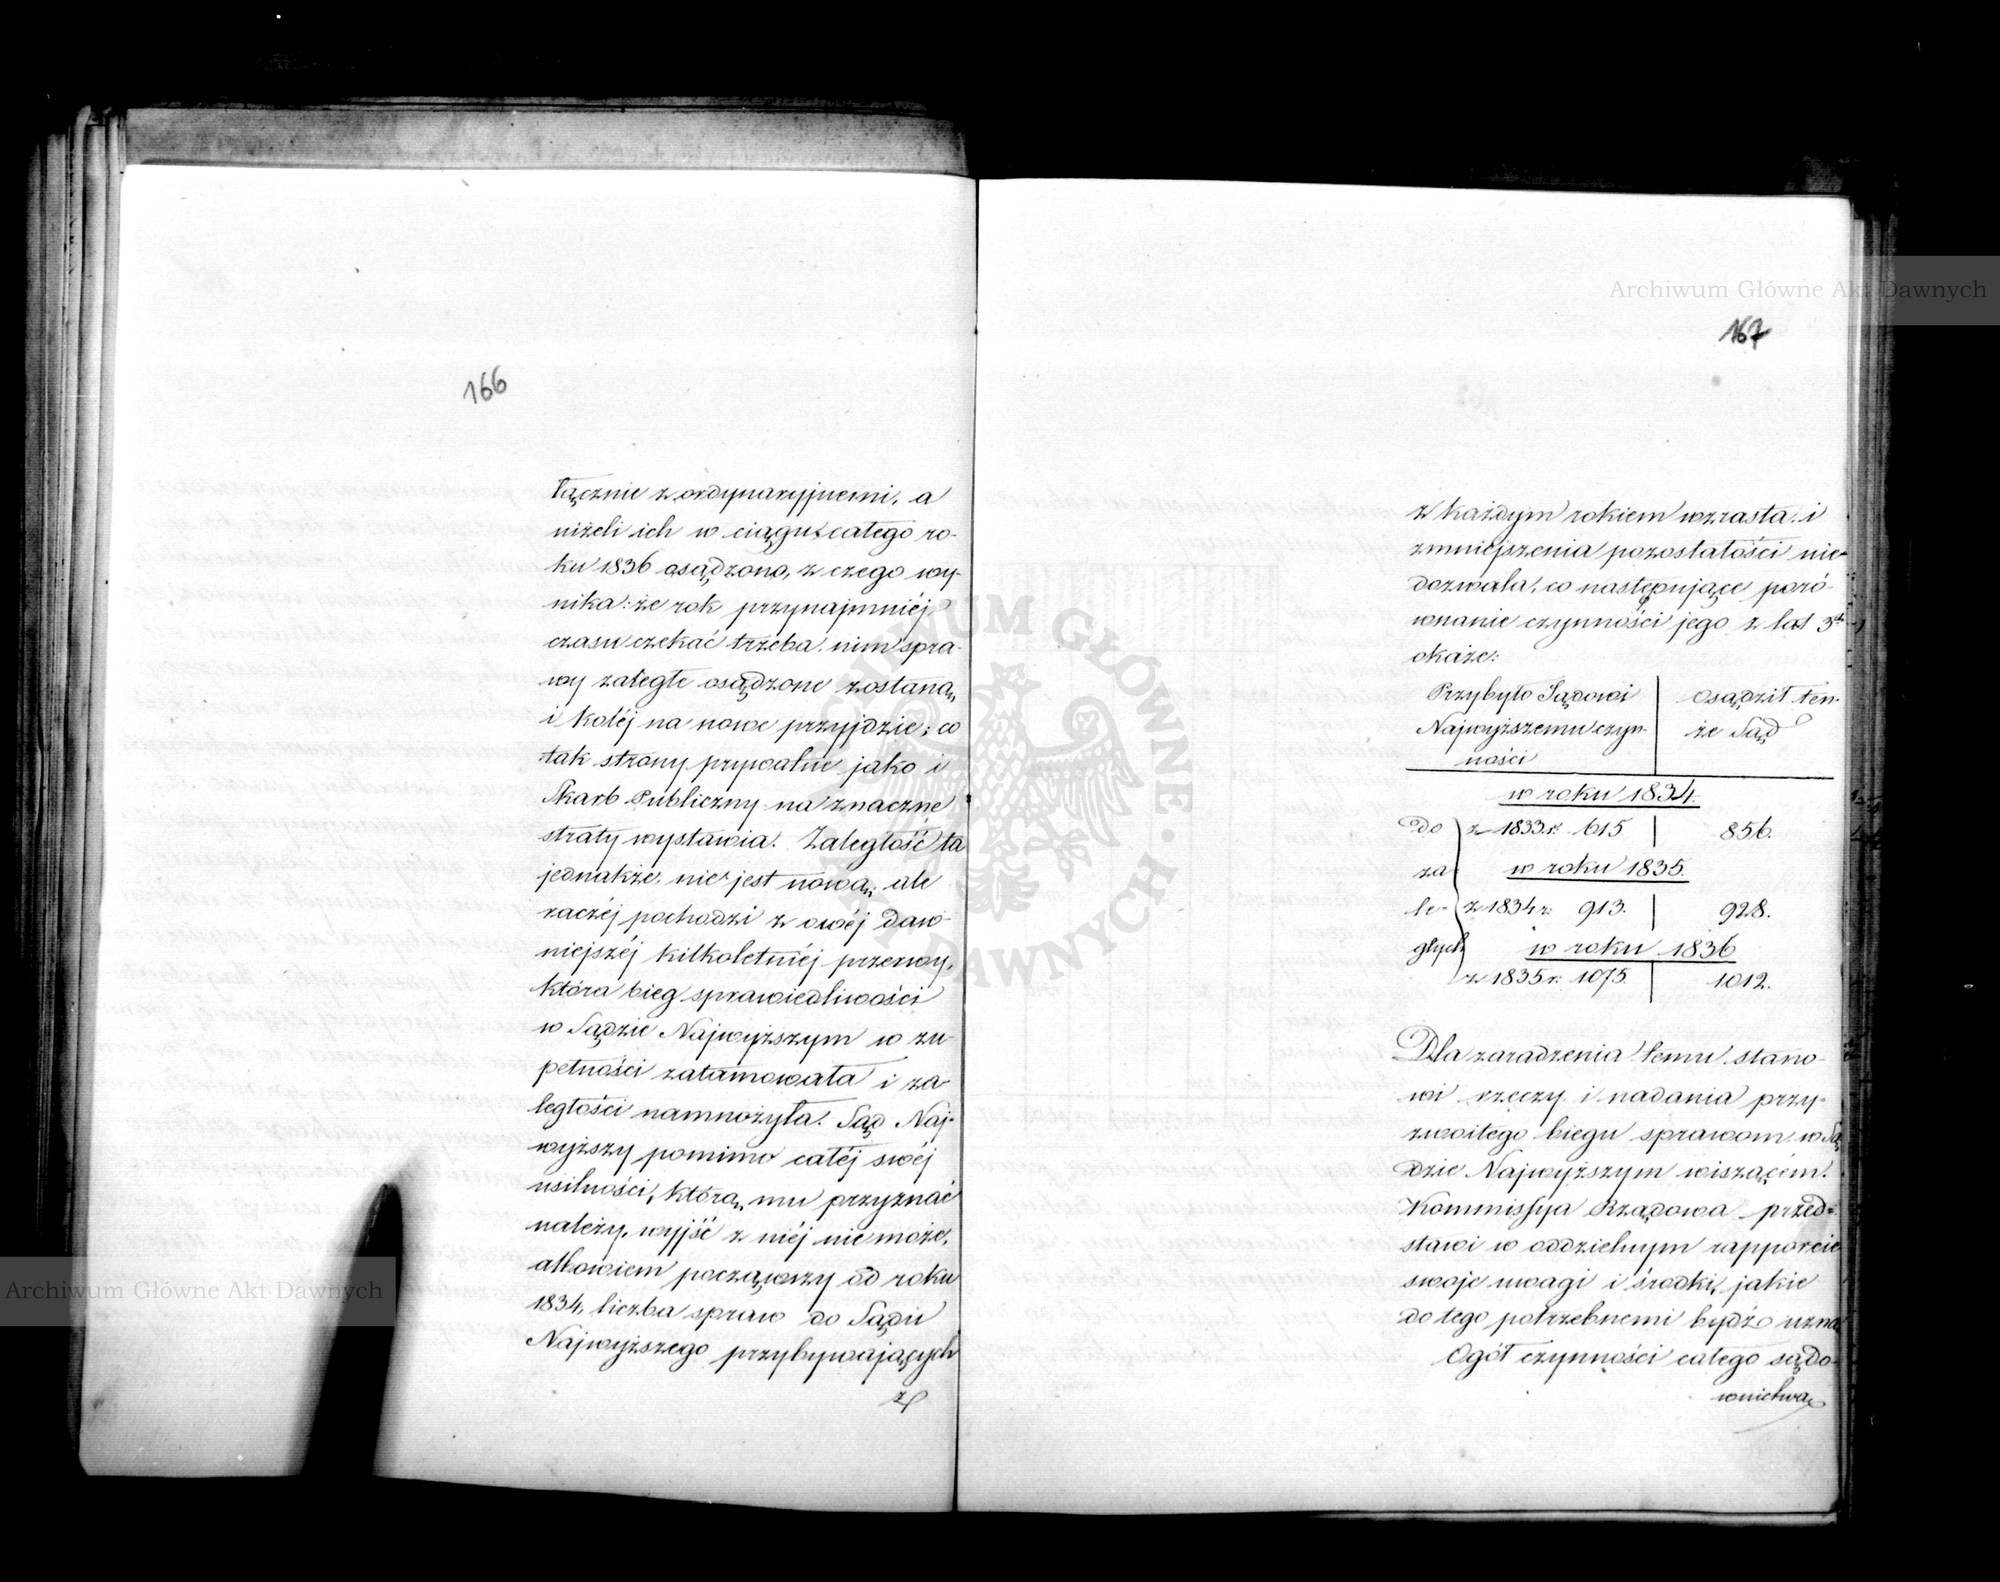 166
łącznie z ordynaryjnemi, a
niżeli ich w ciągu całego ro-
ku 1836 osądzono, z czego wy-
nika: że rok przynajmniéj
czasu czekać trzeba, nim spra-
wy zaległe osądzone zostaną,
i koléj na nowe przyjdzie; co
tak strony prywatne jako i
Skarb Publiczny na znaczne
straty wystawia. Zaległość ta
jednakże, nie jest nową, ale
raczéj pochodzi z owéj daw-
niejszéj kilkoletniéj przerwy,
która bieg sprawiedliwości
w Sądzie Najwyższym w zu-
pełności zatamowała i za-
ległości namnożyła. Sąd Naj-
wyższy pomimo całéj swéj
usilności, którą mu przyznać
należy, wyjść z niéj nie może,
albowiem począwszy od roku
1834, liczba spraw do Sądu
Najwyższego przybywających
z
167
z każdym rokiem wzrasta, i
zmniejszenia pozostałości nie-
dozwala, co następujące poró-
wnanie czynności jego z lat 3ch
okaże:
Przybyło Sądowi | Osądził ten-
Najwyższemu czyn- | że Sąd
ności
w roku 1834.
do z 1833 r. 615 | 856.
za w roku 1835.
le- z 1834 r. 913. | 928.
głych w roku 1836
z 1835 r. 1075. | 1012.
Dla zaradzenia temu stano-
wi rzeczy i nadania przy-
zwoitego biegu sprawom w Są
dzie Najwyższym wiszącém.
Kommissya Rządowa przed-
stawi w oddzielnym rapporcie
swoje uwagi i środki, jakie
do tego potrzebnemi bydź uzna.
Ogół czynności całego sądo-
wnictwa
Archiwum Główne Akt Dawnych
Archiwum Główne Akt Dawnych
ARCHIWUM GŁÓWNE AKT DAWNYCH